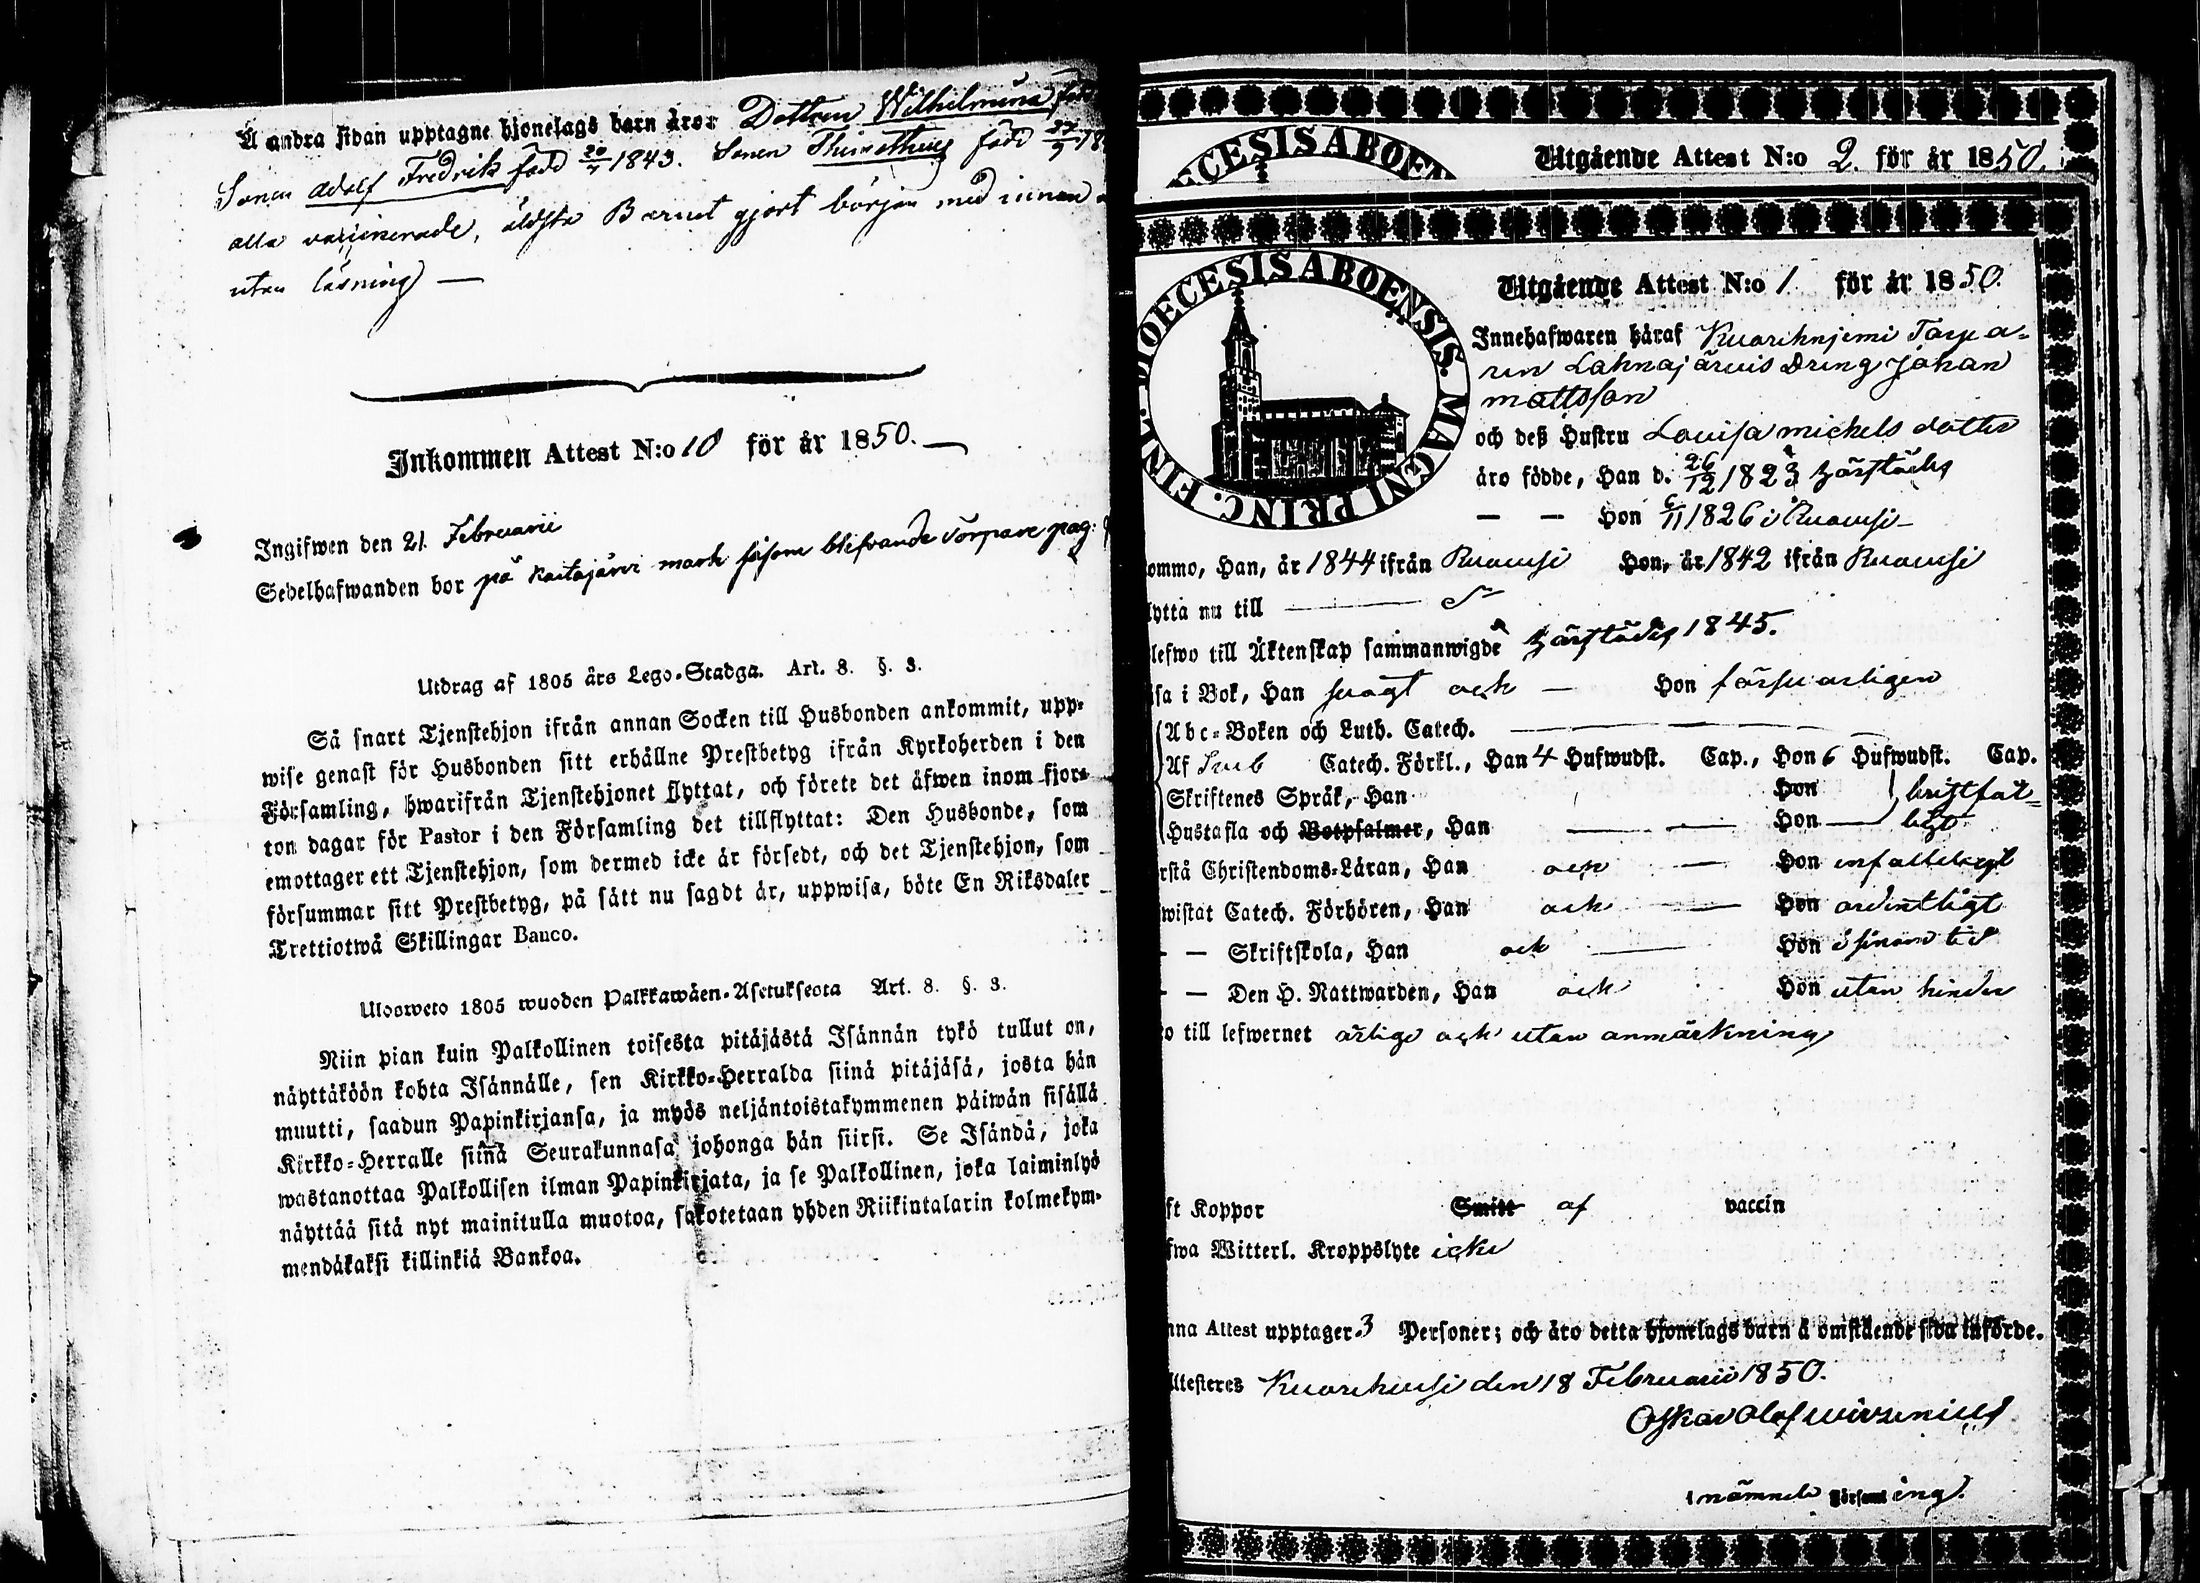 Å andra sidan upptagne hjonelags barn äro: Dottren Wilhelmina född
Sonen Adolf Fredrik född 20/4 1843. Sonen Thimotheus född
alla vaccinerade, äldsta Barnet gjort början med innan
utan läsning —
Inkommen Attest N:o 10 för år 1850. —
Ingifwen den 21 Februarii
Sedelhafwanden bor på Kaitajärvi mark såsom blifvande Torpare
Utdrag af 1805 års Lego-Stadga. Art. 8. §. 3.
Så snart Tjenstehjon ifrån annan Socken till Husbonden ankommit, upp-
wise genast för Husbonden sitt erhållne Prestbetyg ifrån Kyrkoherden i den
Församling, hwarifrån Tjenstehjonet flyttat, och förete det äfwen inom fjor-
ton dagar för Pastor i den Församling det tillflyttat: Den Husbonde, som
emottager ett Tjenstehjon, som dermed icke är försedt, och det Tjenstehjon, som
försummar sitt Prestbetyg, på sätt nu sagdt är, uppwisa, böte En Riksdaler
Trettiotwå Skillingar Banco.
Ulosweto 1805 wuoden Palkkawäen-Asetuksesta Art. 8. §. 3.
Niin pian kuin Palkollinen toisesta pitäjästä Isännän tykö tullut on,
näyttäköön kohta Isännälle, sen Kirkko-Herralda siinä pitäjäsä, josta hän
muutti, saadun Papinkirjansa, ja myös neljäntoistakymmenen päiwän sisällä
Kirkko-Herralle siinä Seurakunnasa johonga hän siirsi. Se Isändä, joka
wastanottaa Palkollisen ilman Papinkirjata, ja se Palkollinen, joka laiminlyö
näyttää sitä nyt mainitulla muotoa, sakotetaan yhden Riikintalarin kolmekym-
mendäkaksi killinkiä Bankoa.
ECESIS ABOEN
Utgående Attest N:o 2. för år 1850.
DIOECESIS ABOENSIS. MAGNI PRINC. FINL.
Utgående Attest N:o 1 för år 1850.
Innehafwaren häraf
Lahnajärvis Dräng Johan
Mattsson
och deß Hustru Lovisa Michels dotter
äro födde, Han d. 26/12 1823 härstädes
— — Hon 6/11 1826 i
ommo, Han, år 1844 ifrån Hon, år 1842 ifrån
lytta nu till
lefwo till Äktenskap sammanwigde härstädes 1845.
sa i Bok, Han svagt och — Hon försvarligen
Abc-Boken och Luth. Catech. —
Af Sveb Catech. Förkl., Han 4 Hufwudst. Cap., Hon 6 Hufwudst. Cap.
Skriftenes Språk, Han Hon bristfäl-
Hustafla och Botpsalmer, Han — — Hon — ligt
rstå Christendoms-Läran, Han och — Hon enfaldeligt
wistat Catech. Förhören, Han och — Hon ordentligt
— — Skriftskola, Han och — Hon i sinom tid
— — Den H. Nattwarden, Han och Hon utan hinder
o till lefwernet ärlige och utan anmärkning
ft Koppor Smitt af vaccin
fwa Witterl. Kroppslyte icke
nna Attest upptager 3 Personer; och äro detta hjonelags barn å omstående sida införde.
ttesteres den 18 Februarii 1850.
Oskar Olof Wirzenius
i nämnde Församling.